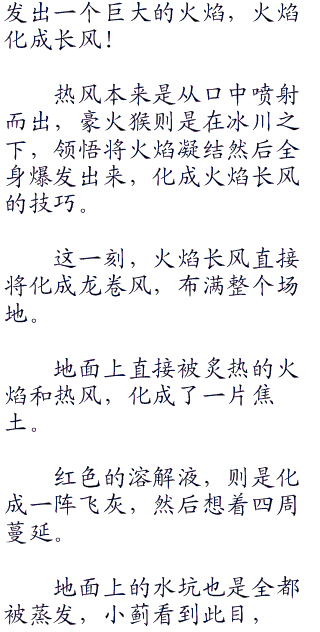 发出一个巨大的火焰，火焰
化成长风！
热风本来是从口中喷射
而出，豪火猴则是在冰川之
下，领悟将火焰凝结然后全
身爆发出来，化成火焰长风
的技巧。
这一刻，火焰长风直接
将化成龙卷风，布满整个场
地。
地面上直接被炙热的火
焰和热风，化成了一片焦
土。
红色的溶解液，则是化
成一阵飞灰，然后想着四周
蔓延。
地面上的水坑也是全都
被蒸发，小蓟看到此目，